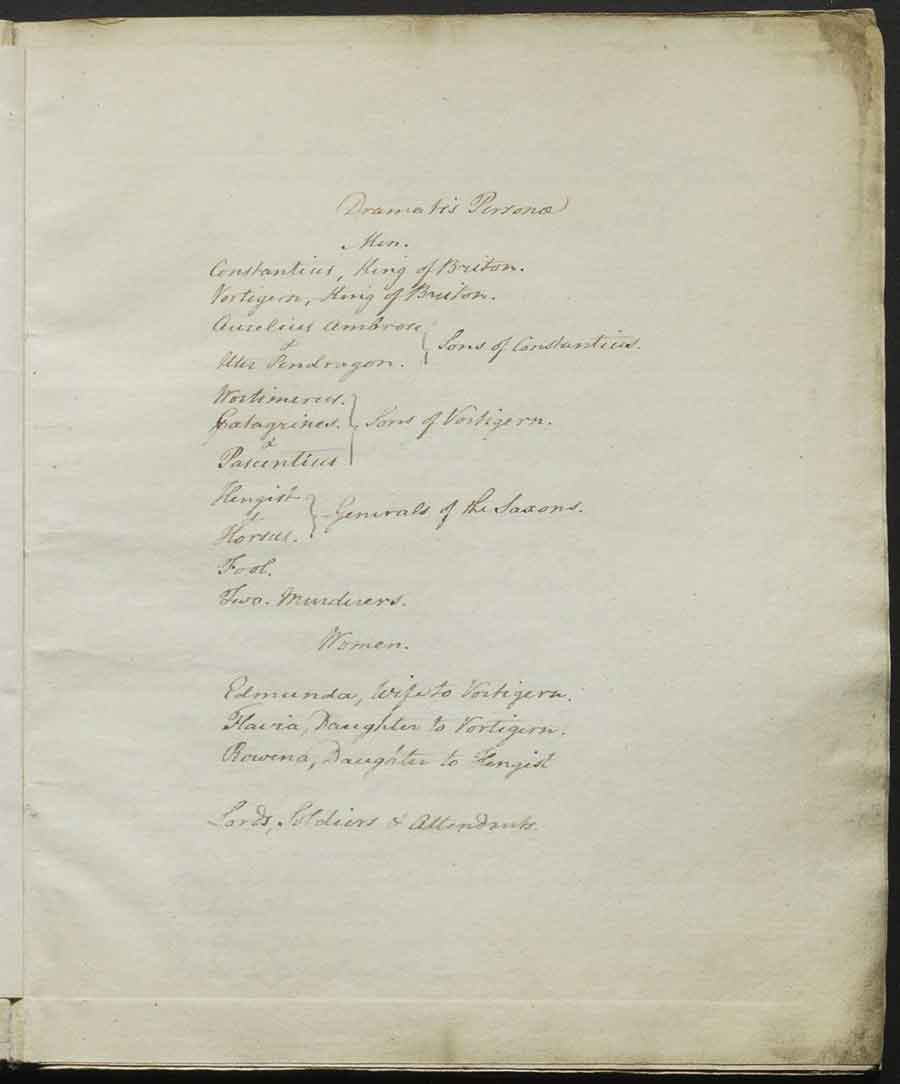 Dramatis Personæ
Men.
Constantius, King of Briton.
Vortigern, King of Briton.
Aurelius Ambrose
&
Uter Pendragon. } Sons of Constantius.
Wortimerus.
Catagrines. } Sons of Vortigern.
&
Pascentius
Hengist
& } Generals of the Saxons.
Horsus.
Fool.
Two. Murderers.
Women.
Edmunda, Wife to Vortigern.
Flavia, Daughter to Vortigern.
Rowena, Daughter to Hengist
Lords, Soldiers & Attendants.